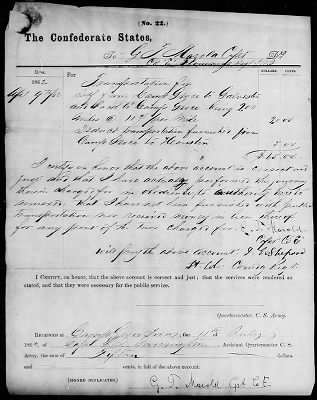 (No. 22.)
The Confederate States,
To G. T. Marold Capt Dr.
DOLLARS. CENTS.
Date.
1862
For Transportation for
self from Camp Groce to
and back to Camp Groce being 200
miles @ 10 cts per mile 20.00
Deduct transportation furnished from
Camp Groce to Houston 5.00
$ 15.00
I certify on honor that the above account is correct and
just and that I have actually performed the journey
therein charged for in obedience to authority hereto
annexed that I have not been furnished with public
transportation nor received money in lieu thereof
for any part of the two charged for. G. T. Marold
Capt Co E
the above account.
I CERTIFY, on honor, that the above account is correct and just; that the services were rendered as stated, and that they were necessary for the public service.
Quartermaster, C. S. Army.
RECEIVED at Camp the 11th of July
186 , of Capt Assistant Quartermaster C. S.
Army, the sum of Fifteen dollars
and cents, in full of the above account.
[SIGNED DUPLICATES.]
G. T. Marold Capt Co E